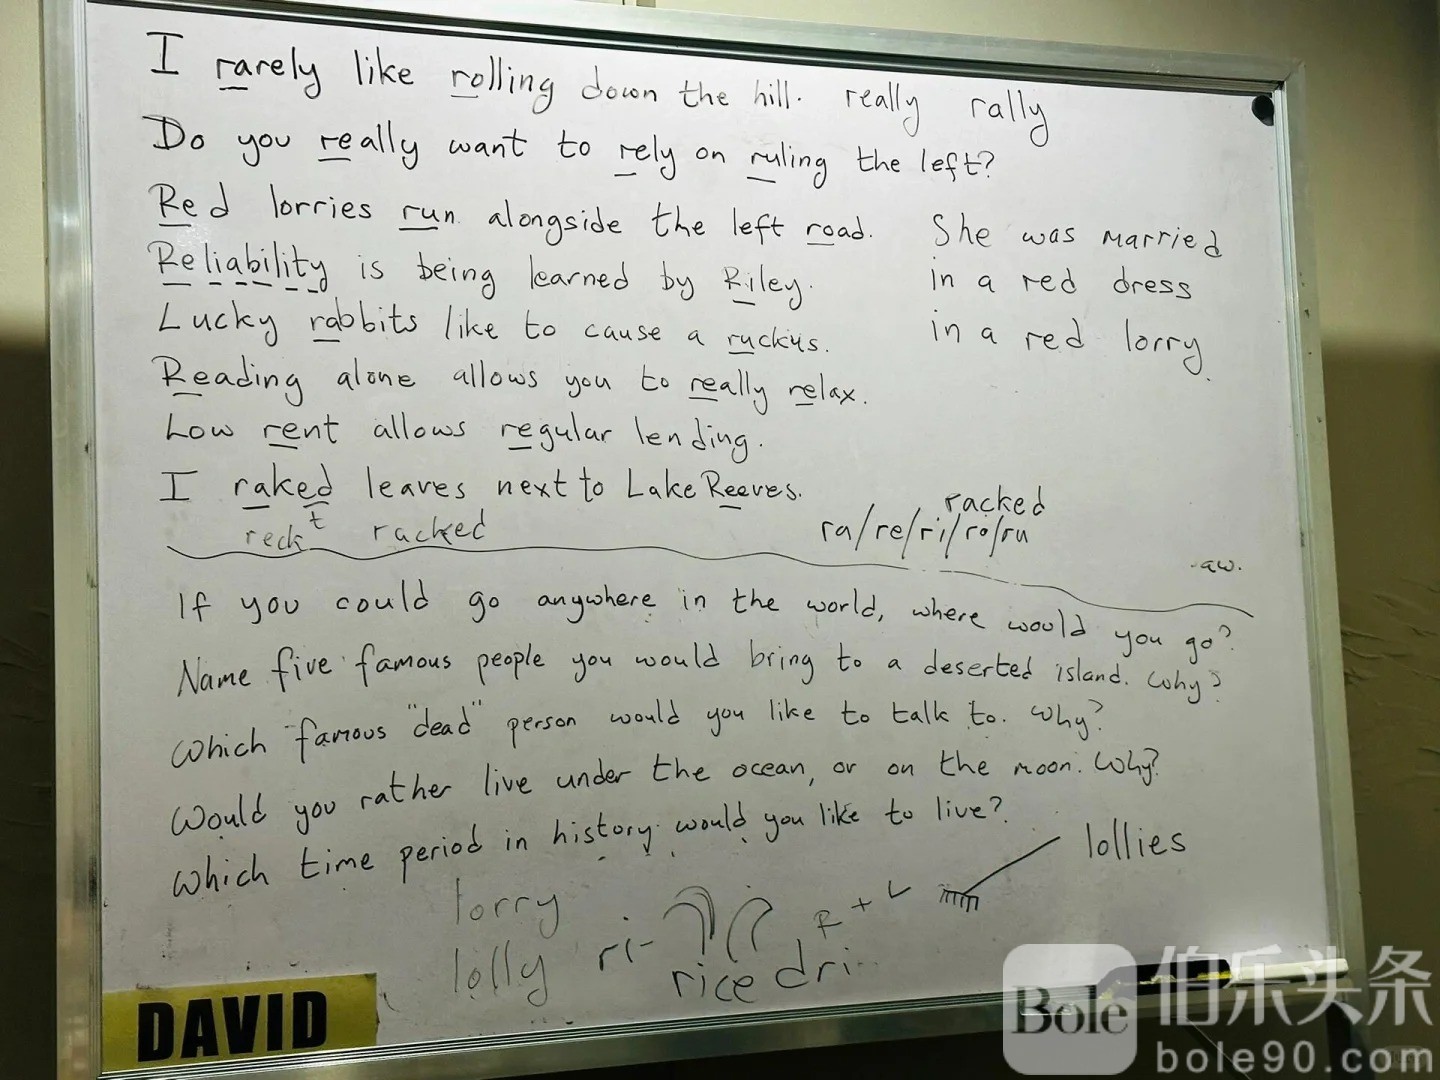 I rarely like rolling down the hill. really rally
Do you really want to rely on ruling the left?
Red lorries run alongside the left road.
Reliability is being learned by Riley.
Lucky rabbits like to cause a ruckus.
Reading alone allows you to really relax.
Low rent allows regular lending.
I raked leaves next to Lake Reeves.
t
reck racked
She was married
in a red dress
in a red lorry
racked
ra/re/ri/ro/ru
-aw.
If you could go anywhere in the world, where would you go?
Name five famous people you would bring to a deserted island. Why?
Which famous "dead" person would you like to talk to. Why?
Would you rather live under the ocean, or on the moon. Why?
Which time period in history would you like to live?
lollies
lorry
lolly
ri-
R + L
rice dri..
DAVID
Bole 伯乐头条
bole90.com